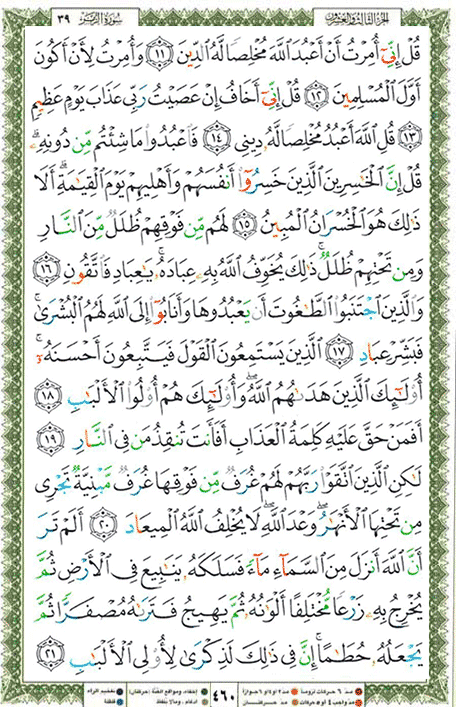 ٣٩ سُورَةُ الزُّمَر الجُزْءُ الثَّالِثُ وَالعِشْرُونَ
قُلْ إِنِّىٓ أُمِرْتُ أَنْ أَعْبُدَ ٱللَّهَ مُخْلِصًا لَّهُ ٱلدِّينَ ١١ وَأُمِرْتُ لِأَنْ أَكُونَ
أَوَّلَ ٱلْمُسْلِمِينَ ١٢ قُلْ إِنِّىٓ أَخَافُ إِنْ عَصَيْتُ رَبِّى عَذَابَ يَوْمٍ عَظِيمٍ
١٣ قُلِ ٱللَّهَ أَعْبُدُ مُخْلِصًا لَّهُۥ دِينِى ١٤ فَٱعْبُدُوا۟ مَا شِئْتُم مِّن دُونِهِۦ ۗ
قُلْ إِنَّ ٱلْخَـٰسِرِينَ ٱلَّذِينَ خَسِرُوٓا۟ أَنفُسَهُمْ وَأَهْلِيهِمْ يَوْمَ ٱلْقِيَـٰمَةِ ۗ أَلَا
ذَٰلِكَ هُوَ ٱلْخُسْرَانُ ٱلْمُبِينُ ١٥ لَهُم مِّن فَوْقِهِمْ ظُلَلٌ مِّنَ ٱلنَّارِ
وَمِن تَحْتِهِمْ ظُلَلٌ ۚ ذَٰلِكَ يُخَوِّفُ ٱللَّهُ بِهِۦ عِبَادَهُۥ ۚ يَـٰعِبَادِ فَٱتَّقُونِ ١٦
وَٱلَّذِينَ ٱجْتَنَبُوا۟ ٱلطَّـٰغُوتَ أَن يَعْبُدُوهَا وَأَنَابُوٓا۟ إِلَى ٱللَّهِ لَهُمُ ٱلْبُشْرَىٰ ۚ
فَبَشِّرْ عِبَادِ ١٧ ٱلَّذِينَ يَسْتَمِعُونَ ٱلْقَوْلَ فَيَتَّبِعُونَ أَحْسَنَهُۥٓ ۚ
أُو۟لَـٰٓئِكَ ٱلَّذِينَ هَدَىٰهُمُ ٱللَّهُ ۖ وَأُو۟لَـٰٓئِكَ هُمْ أُو۟لُوا۟ ٱلْأَلْبَـٰبِ ١٨
أَفَمَنْ حَقَّ عَلَيْهِ كَلِمَةُ ٱلْعَذَابِ أَفَأَنتَ تُنقِذُ مَن فِى ٱلنَّارِ ١٩
لَـٰكِنِ ٱلَّذِينَ ٱتَّقَوْا۟ رَبَّهُمْ لَهُمْ غُرَفٌ مِّن فَوْقِهَا غُرَفٌ مَّبْنِيَّةٌ تَجْرِى
مِن تَحْتِهَا ٱلْأَنْهَـٰرُ ۖ وَعْدَ ٱللَّهِ ۖ لَا يُخْلِفُ ٱللَّهُ ٱلْمِيعَادَ ٢٠ أَلَمْ تَرَ
أَنَّ ٱللَّهَ أَنزَلَ مِنَ ٱلسَّمَآءِ مَآءً فَسَلَكَهُۥ يَنَـٰبِيعَ فِى ٱلْأَرْضِ ثُمَّ
يُخْرِجُ بِهِۦ زَرْعًا مُّخْتَلِفًا أَلْوَٰنُهُۥ ثُمَّ يَهِيجُ فَتَرَىٰهُ مُصْفَرًّا ثُمَّ
يَجْعَلُهُۥ حُطَـٰمًا ۚ إِنَّ فِى ذَٰلِكَ لَذِكْرَىٰ لِأُو۟لِى ٱلْأَلْبَـٰبِ ٢١
مدّ ٦ حركات لزوماً مدّ ٢ أو ٤ أو ٦ جوازاً ٤٦٠ إخفاء، ومواقع الغنّة (حركتان) تفخيم الراء
مدّ واجب ٤ أو ٥ حركات مدّ حركتان إدغام، وما لا يُلفظ قلقلة